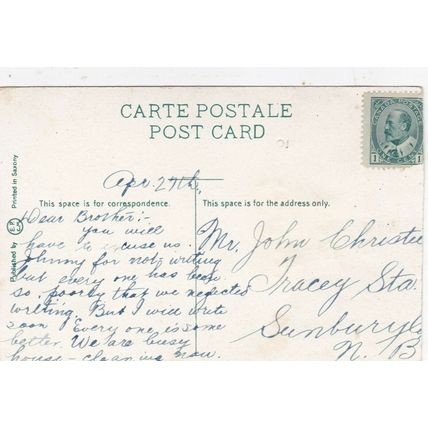 CARTE POSTALE
POST CARD
CANADA POSTAGE
1 1
Apr. 27th.
This space is for correspondence.
This space is for the address only.
Printed in Saxony
Published by
Dear Brother:-
You will
have to excuse us.
Johnny for not writing
but every one has been
so poorly that we neglected
writing. But I will write
soon Every one is some
better. We are busy
house-cleaning now.
Mr. John Christie
Tracey Sta.
Sunbury
N. B